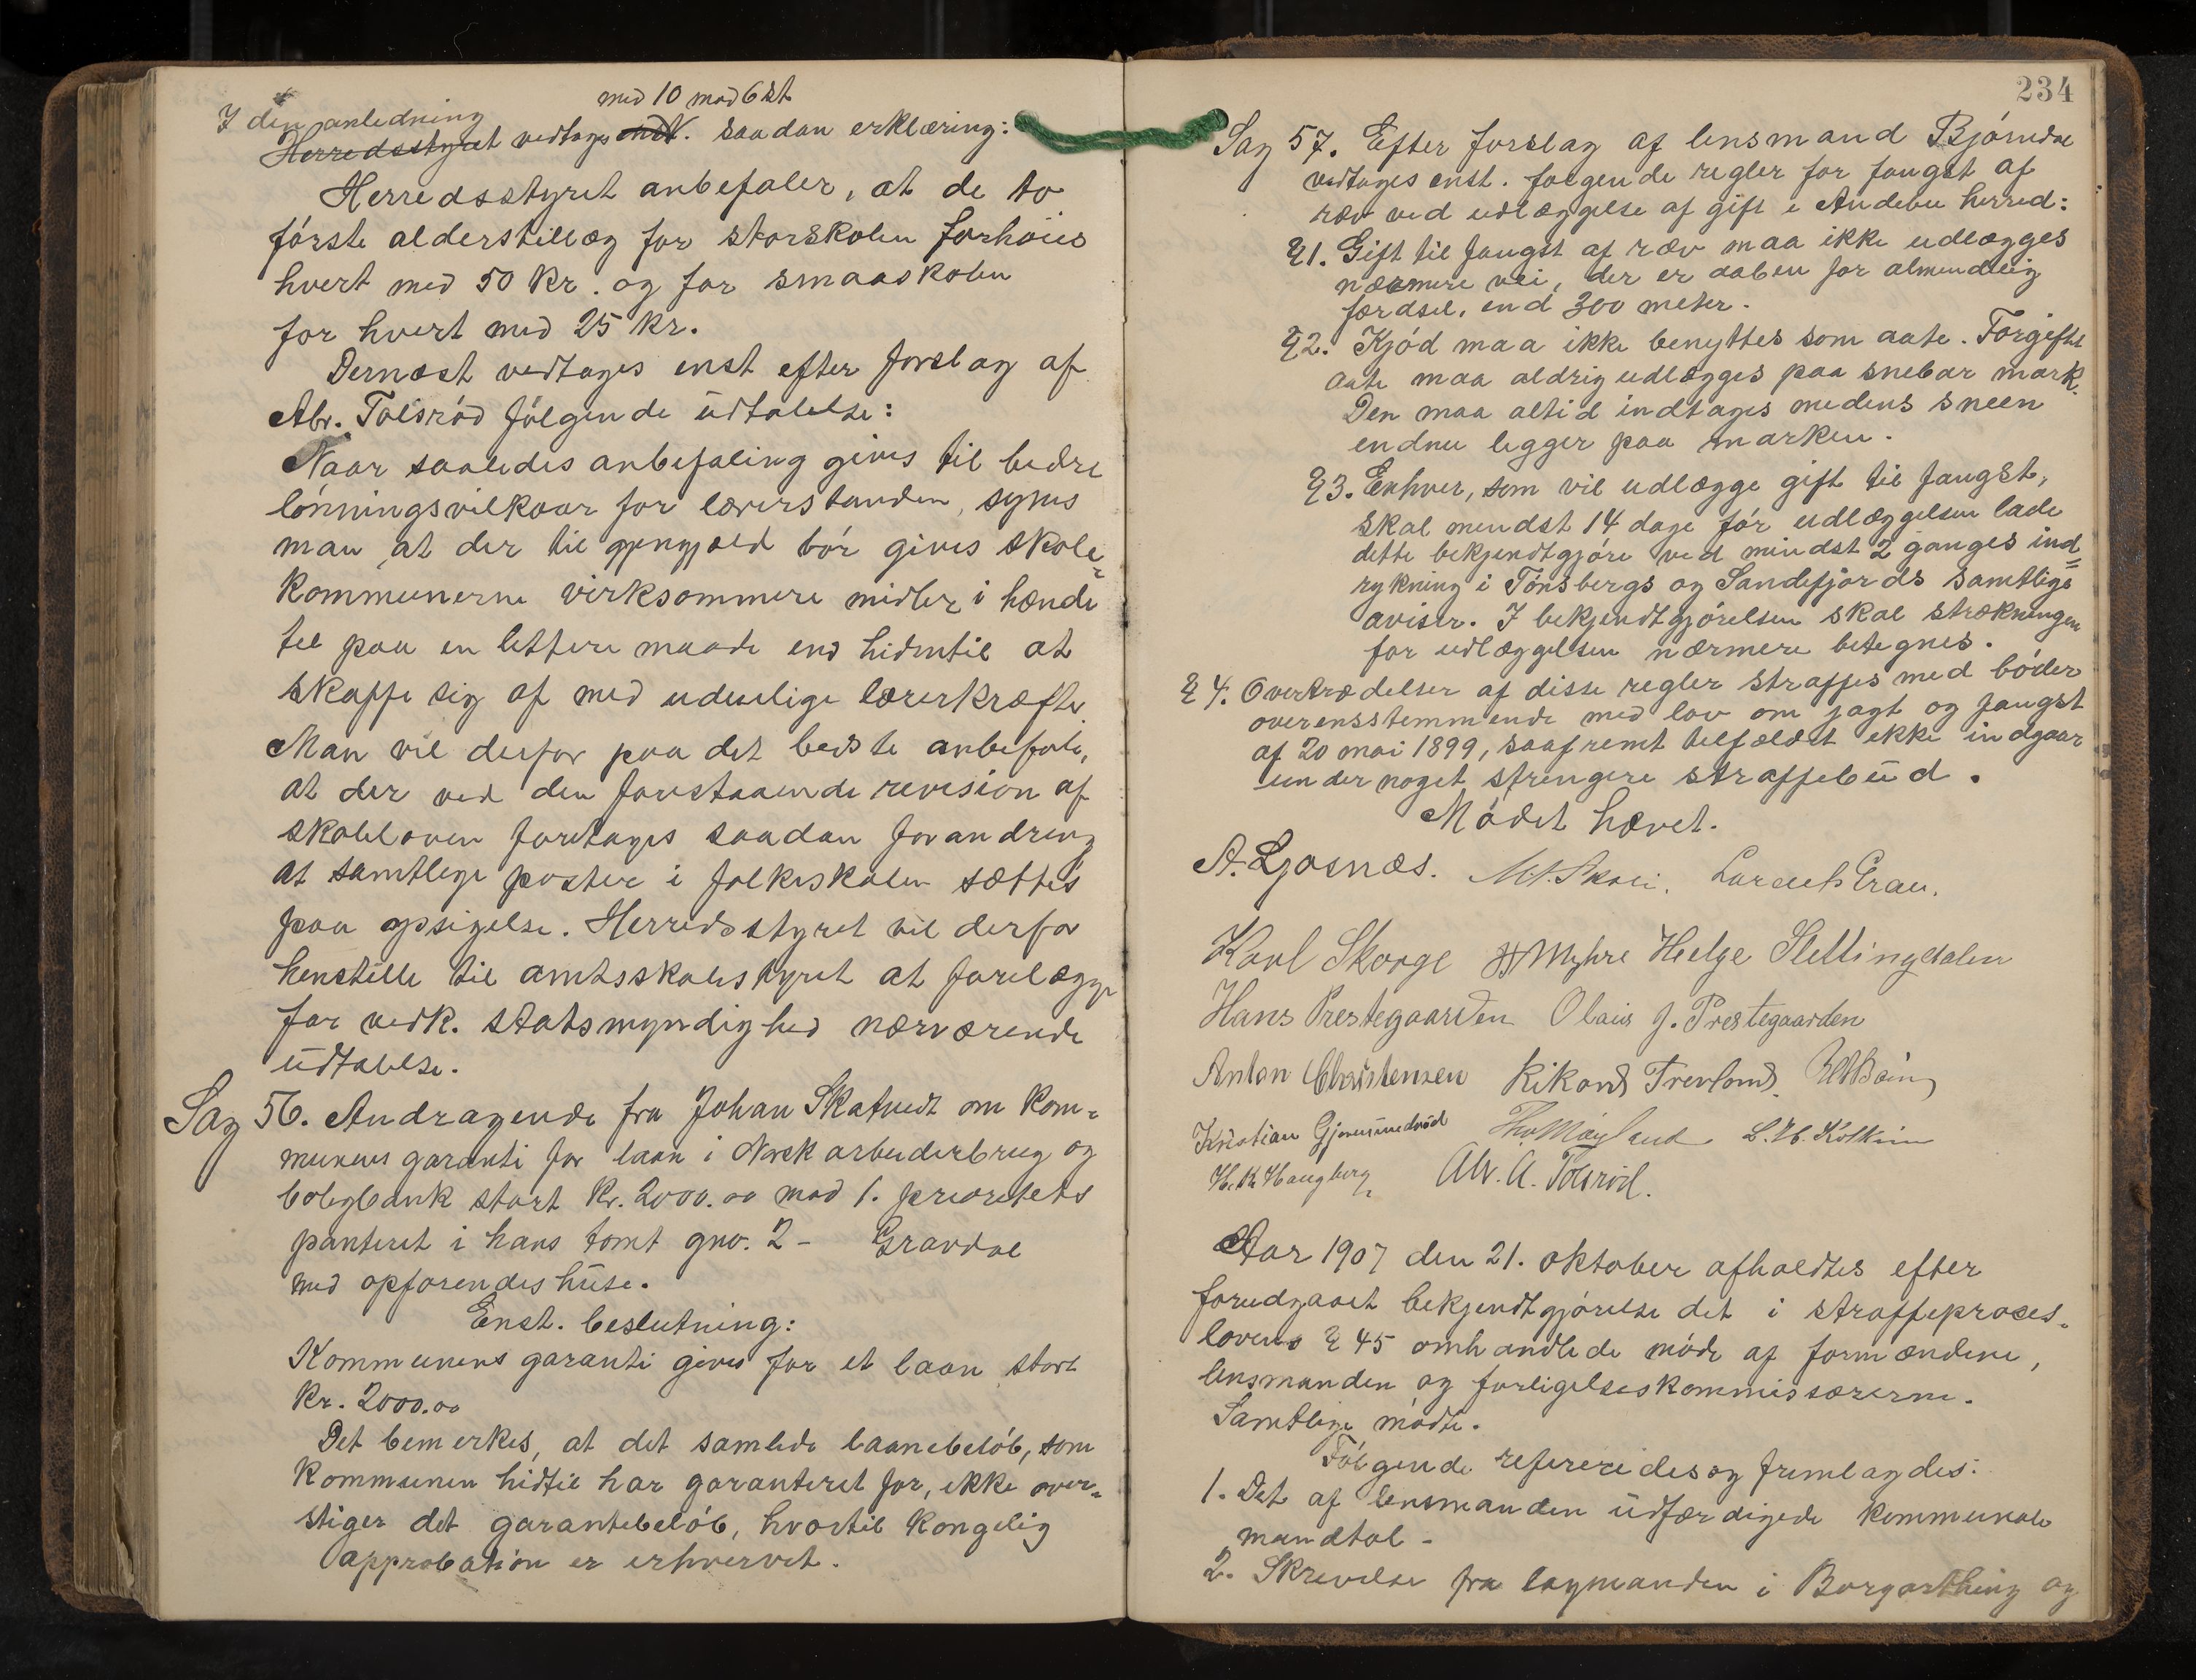 med 10 mod 6 st
I den anledning
Herredsstyret vedtages enst. saadan erklæring:
Herredsstyret anbefaler, at de to
første alderstillæg for storskolen forhøies
hvert med 50 kr. og for smaaskolen
for hvert med 25 kr.
Dernæst vedtages enst efter forslag af
Abr. Tolsrød følgende udtalelse:
Naar saaledes anbefaling gives til bedre
lønningsvilkaar for lærerstanden, synes
man at der til gjengjæld bør gives skole-
kommunerne virksommere midler i hænde
til paa en lettere maade end hidentil at
skaffe sig af med uduelige lærerkræfter.
Man vil derfor paa det bedste anbefale,
at der ved den forestaaende revision af
skoleloven foretages saadan forandring
at samtlige poster i folkeskolen sættes
paa opsigelse. Herredsstyret vil derfor
henstille til amtsskolestyret at forelægge
for vedk. statsmyndighed nærværende
udtalelse.
Sag 56. Andragende fra Johan Skatvedt om kom-
munens garanti for laan i Norsk arbeiderbrug og
boligbank stort kr. 2000.00 mod 1. prioritets
panteret i hans tomt gno. 2 - Gravdal
med opførendes huse.
Enst. beslutning:
Kommunens garanti gives for et laan stort
kr. 2000.00
Det bemerkes, at det samlede laanebeløb, som
kommunen hidtil har garanteret for, ikke over-
stiger det garantibeløb, hvortil kongelig
approbation er erhvervet.
234
Sag 57. Efter forslag af lensmand Bjørndal
vedtages enst. følgende regler for fangst af
ræv ved udlæggelse af gift i Andebu herred:
§1. Gift til fangst af ræv maa ikke udlægges
nærmere vei, der er aaben for almindelig
færdsel, end 300 meter.
§2. Kjød maa ikke benyttes som aate. Forgiftet
aate maa aldrig udlægges paa snebar mark.
Den maa altid indtages medens sneen
endnu ligger paa marken.
§3. Enhver, som vil udlægge gift til fangst,
skal mindst 14 dage før udlæggelsen lade
dette bekjendtgjøre ved mindst 2 ganges ind=
rykning i Tønsbergs og Sandefjords samtlige
aviser. I bekjendtgjørelsen skal strækningen
for udlæggelsen nærmere betegnes.
§4. Overtrædelser af disse regler straffes med bøder
overensstemmende med lov om jagt og fangst
af 20 mai 1899, saafremt tilfældet ikke indgaar
under noget strengere straffebud.
Mødet hævet.
A. Ljosnæs. M. A. Skoli. Laraerts Gran.
Karl Skorge H Myhre Helge Slettingdalen
Hans Prestegaarden Olaus J. Prestegaarden
Anton Christensen Rikard Trevland.
Kristian Gjermundrød Th. Møyland L. H. Kolkin
H. K. Haugberg Abr. A. Tolsrød.
Aar 1907 den 21. oktober afholdtes efter
forudgaaet bekjendtgjørelse det i straffeproces-
lovens § 45 omhandlede møde af formændene,
lensmanden og forligelseskommissærerne.
Samtlige mødte.
Følgende refereredes og fremlagdes:
1. Det af lensmanden udfærdigede kommunale
mandtal -
2. Skrivelse fra lagmanden i Borgarthing og